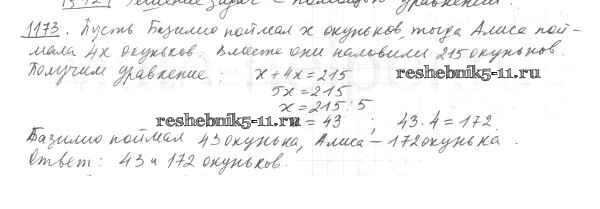 Решение задач с помощью уравнений
1173. Пусть Базилио поймал x окуньков, тогда Алиса пой-
мала 4x окуньков. Вместе они наловили 215 окуньков.
Получим уравнение: x + 4x = 215 reshebnik5-11.ru
5x = 215
x = 215 : 5
reshebnik5-11.ru = 43 ; 43 · 4 = 172.
Базилио поймал 43 окунька, Алиса – 172 окунька.
Ответ: 43 и 172 окуньков.